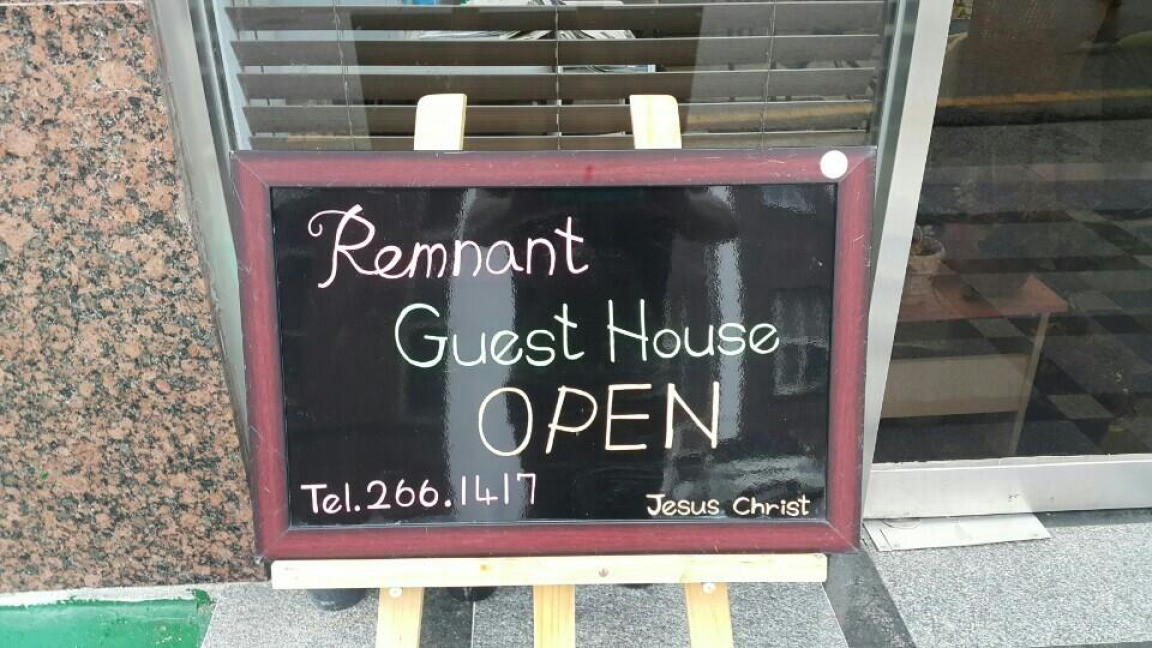 Remnant
Guest House
OPEN
Tel.266.1417
Jesus Christ